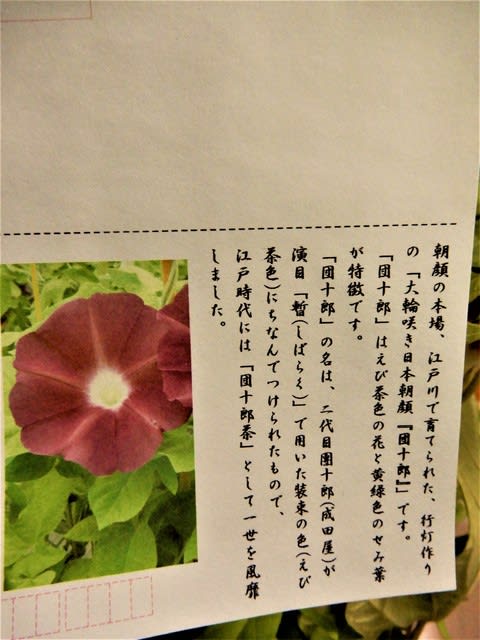 朝顔の本場、江戸川で育てられた、行灯作り
の「大輪咲き日本朝顔『団十郎』」です。
「団十郎」はえび茶色の花と黄緑色のせみ葉
が特徴です。
「団十郎」の名は、二代目團十郎(成田屋)が
演目「暫(しばらく)」で用いた装束の色(えび
茶色)にちなんでつけられたもので、
江戸時代には「団十郎茶」として一世を風靡
しました。